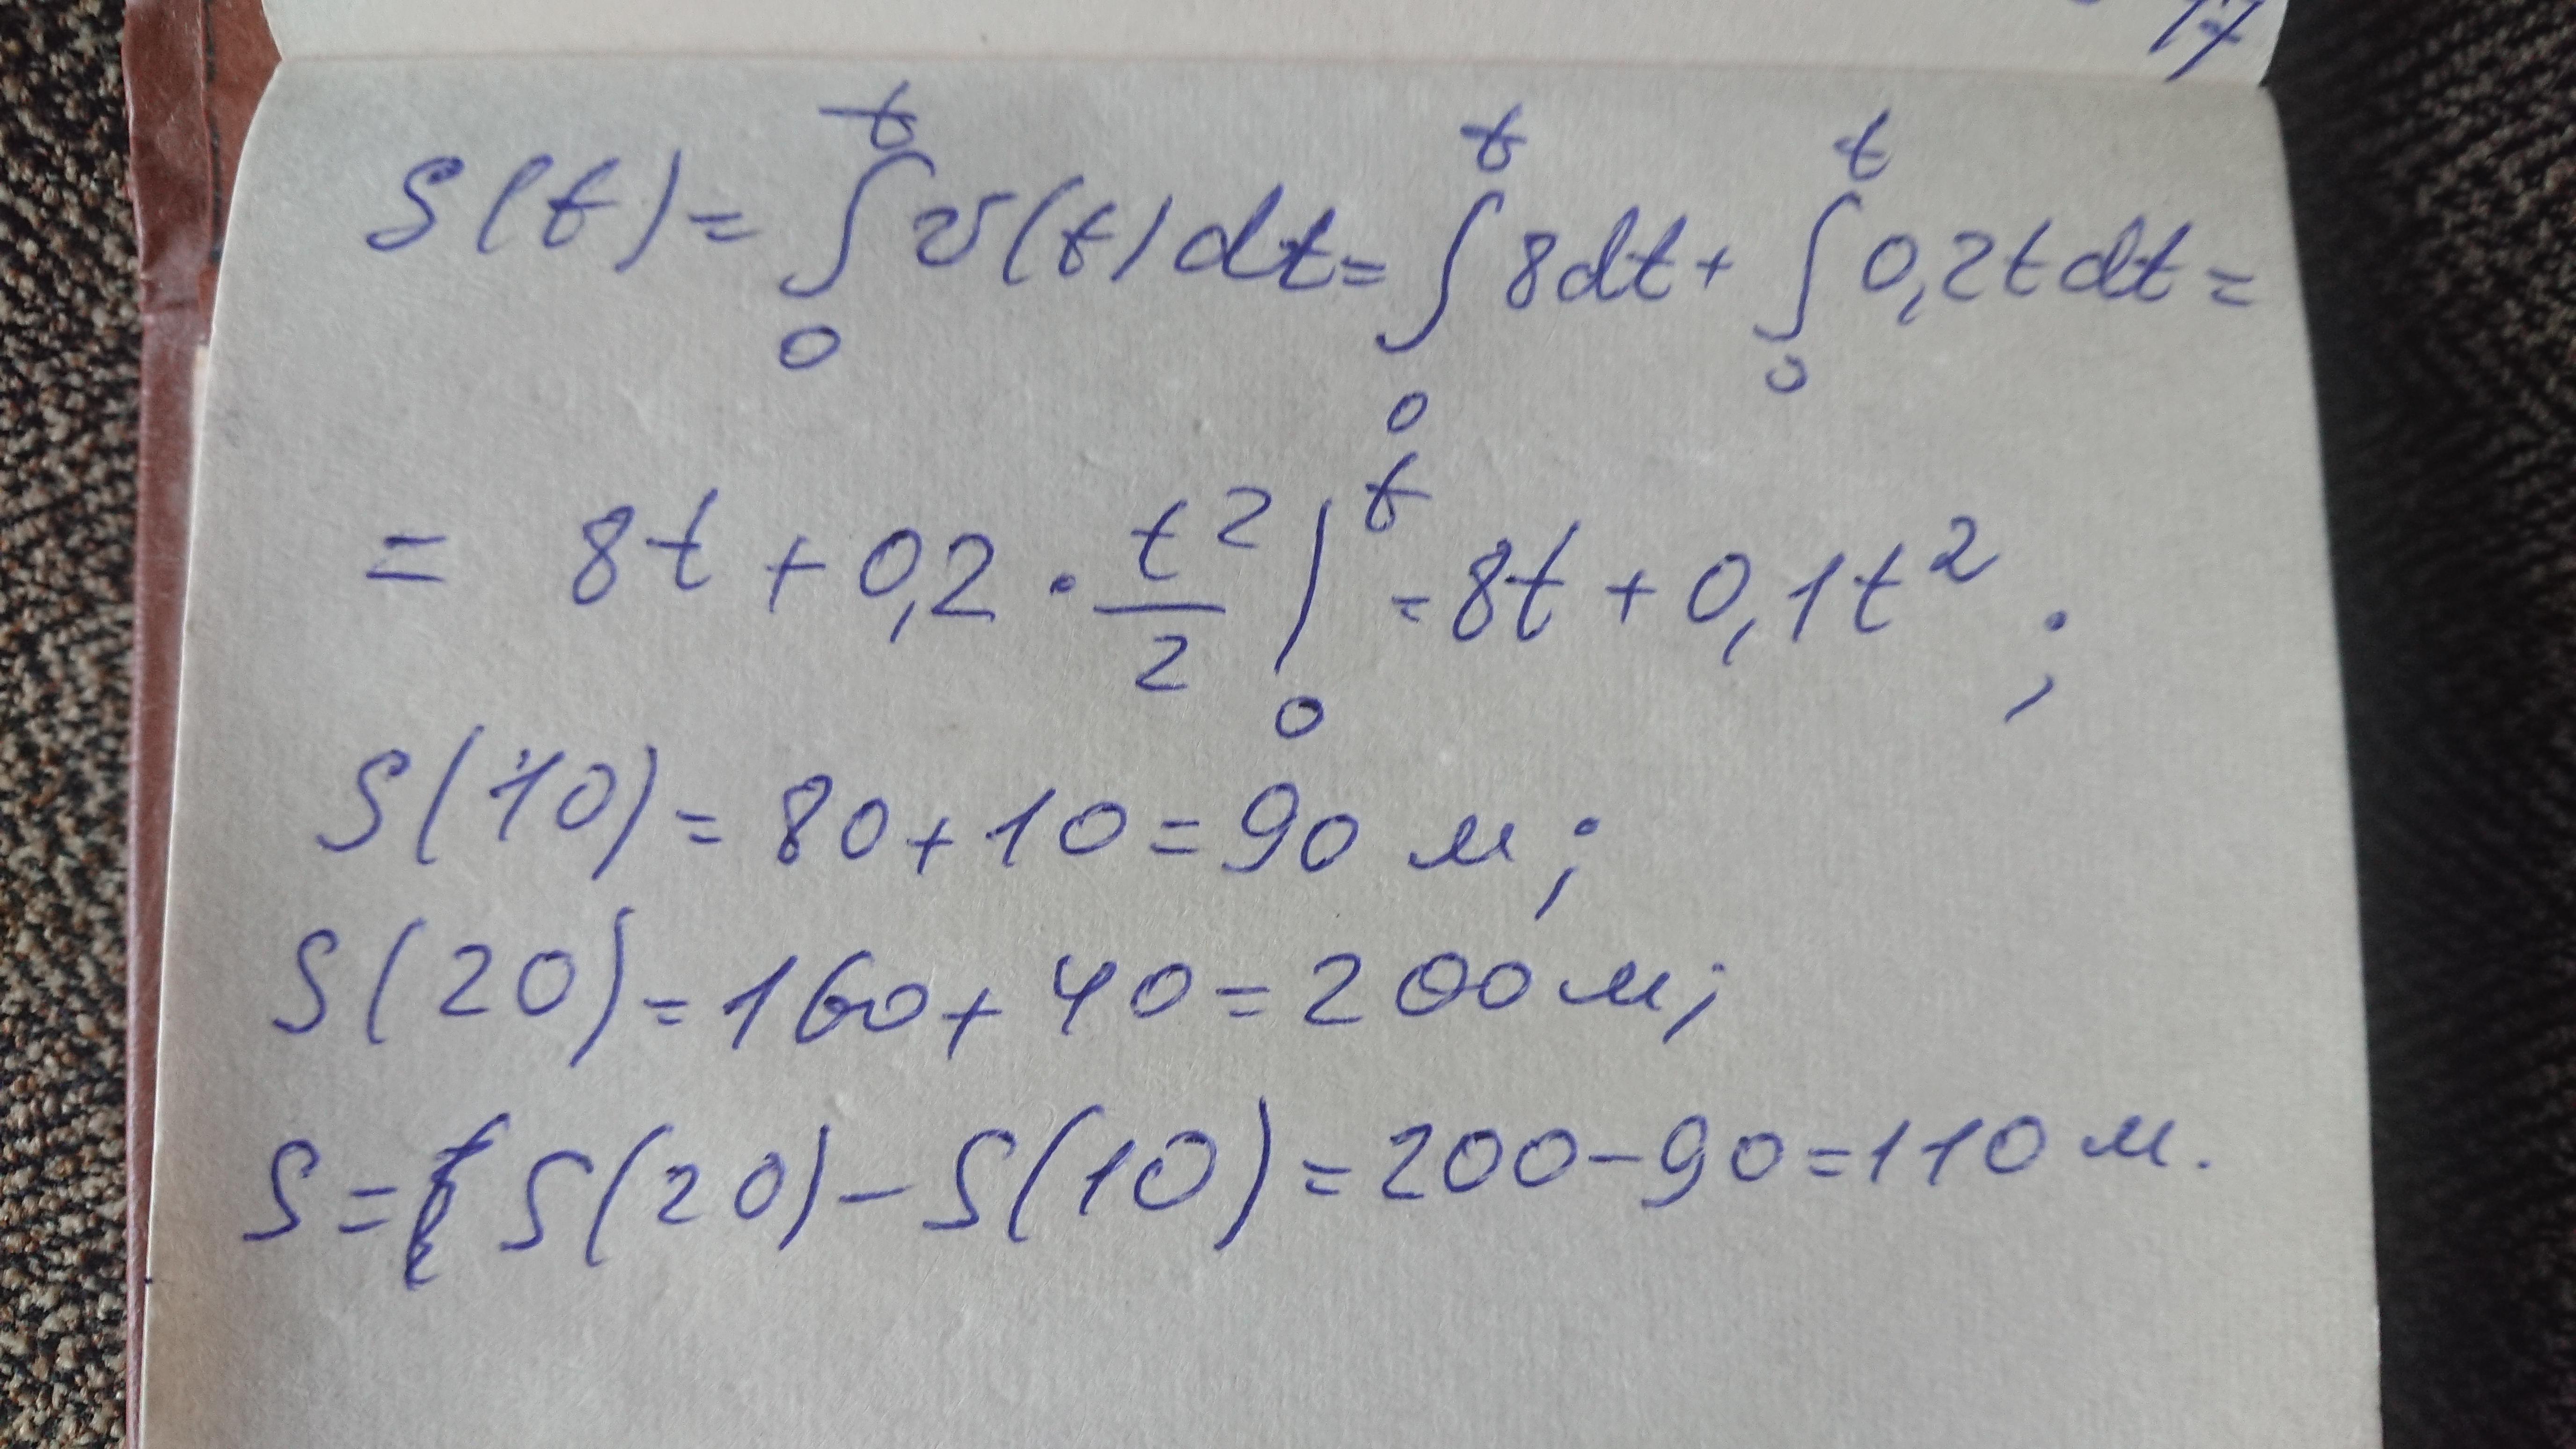 17
S(t) = ∫₀ᵗ v(t) dt = ∫₀ᵗ 8dt + ∫₀ᵗ 0,2t dt =
= 8t + 0,2 · t²/2 |₀ᵗ = 8t + 0,1t² ;
S(10) = 80 + 10 = 90 м ;
S(20) = 160 + 40 = 200 м ;
S = S(20) - S(10) = 200 - 90 = 110 м.